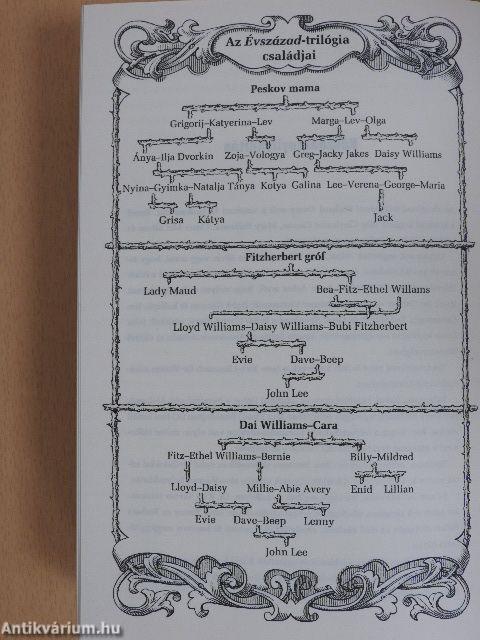 Az Évszázad-trilógia
családjai
Peskov mama
Grigorij–Katyerina–Lev Marga–Lev–Olga
Ánya–Ilja Dvorkin Zoja–Vologya Greg–Jacky Jakes Daisy Williams
Nyina–Gyimka–Natalja Tánya Kotya Galina Lee–Verena–George–Maria
Grisa Kátya Jack
Fitzherbert gróf
Lady Maud Bea–Fitz–Ethel Willams
Lloyd Williams–Daisy Williams–Bubi Fitzherbert
Evie Dave–Beep
John Lee
Dai Williams–Cara
Fitz–Ethel Williams–Bernie Billy–Mildred
Lloyd–Daisy Millie–Abie Avery Enid Lillian
Evie Dave–Beep Lenny
John Lee
Antikvárium.hu